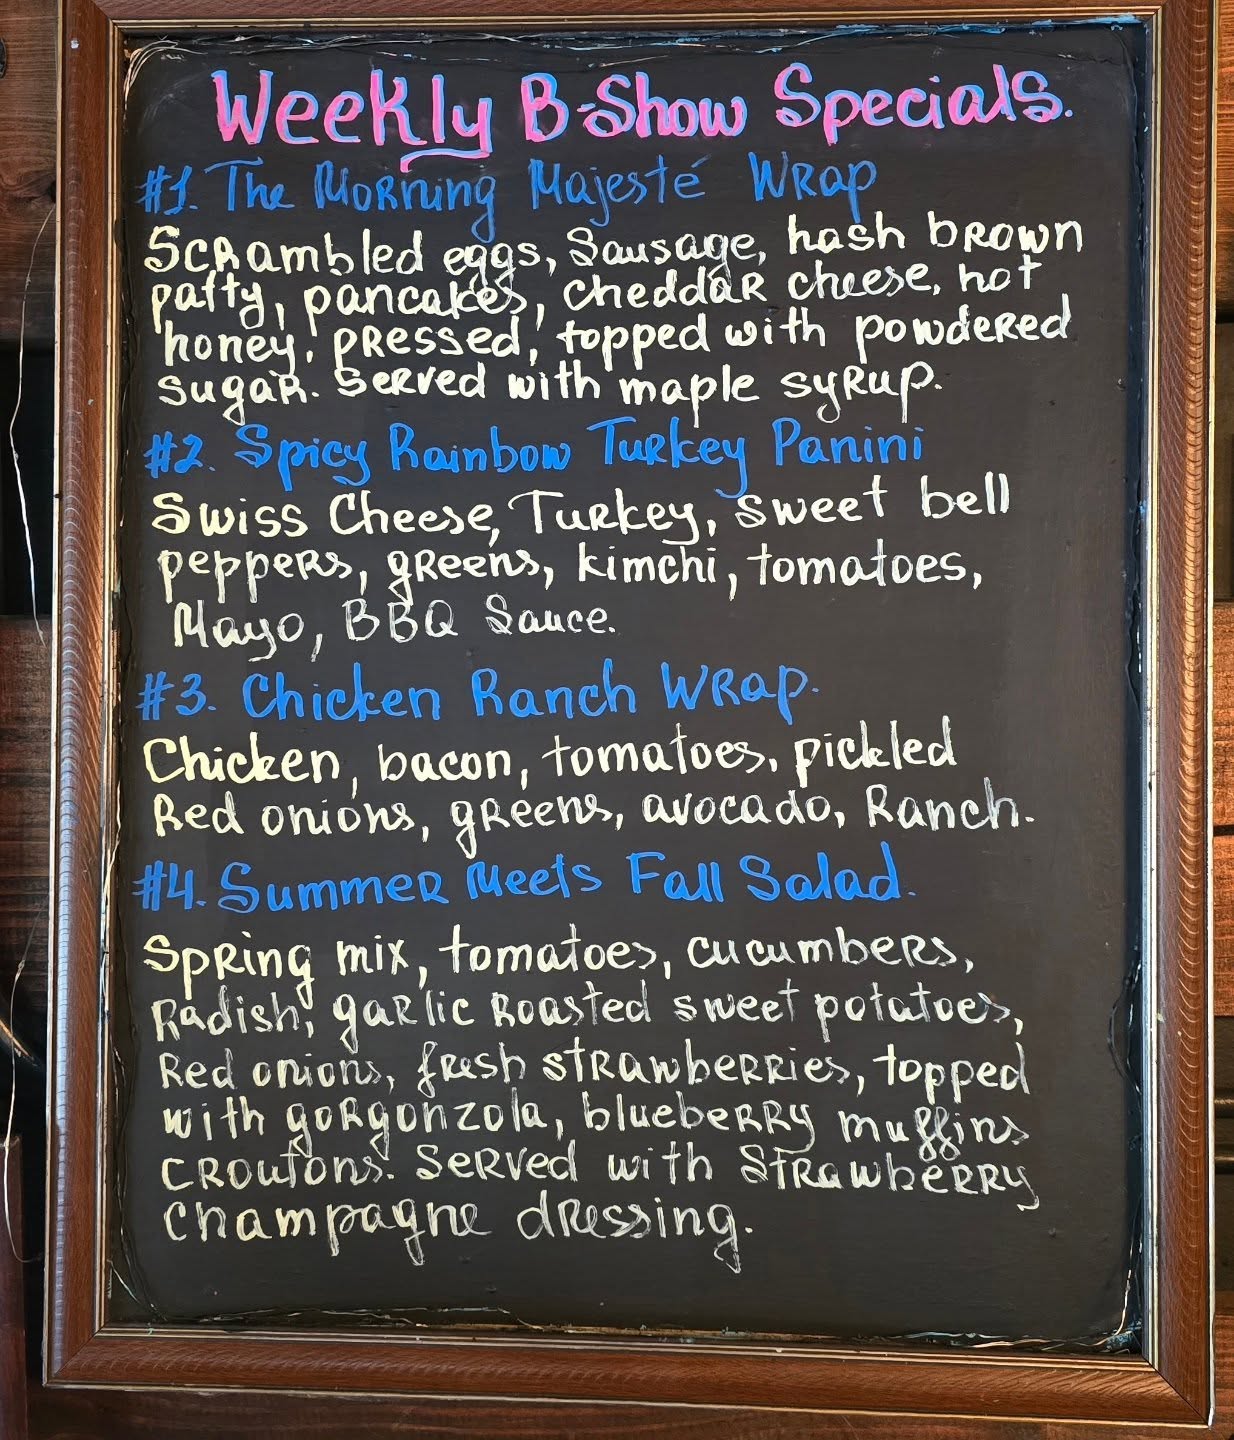 Weekly B-Show Specials.
#1. The Morning Majesté Wrap
Scrambled eggs, Sausage, hash brown
patty, pancakes, cheddar cheese, hot
honey, pressed, topped with powdered
sugar. Served with maple syrup.
#2. Spicy Rainbow Turkey Panini
Swiss Cheese, Turkey, sweet bell
peppers, greens, kimchi, tomatoes,
Mayo, BBQ Sauce.
#3. Chicken Ranch Wrap.
Chicken, bacon, tomatoes, pickled
Red onions, greens, avocado, Ranch.
#4. Summer Meets Fall Salad.
Spring mix, tomatoes, cucumbers,
Radish, garlic roasted sweet potatoes,
Red onions, fresh strawberries, topped
with gorgonzola, blueberry muffins
croutons. Served with strawberry
champagne dressing.